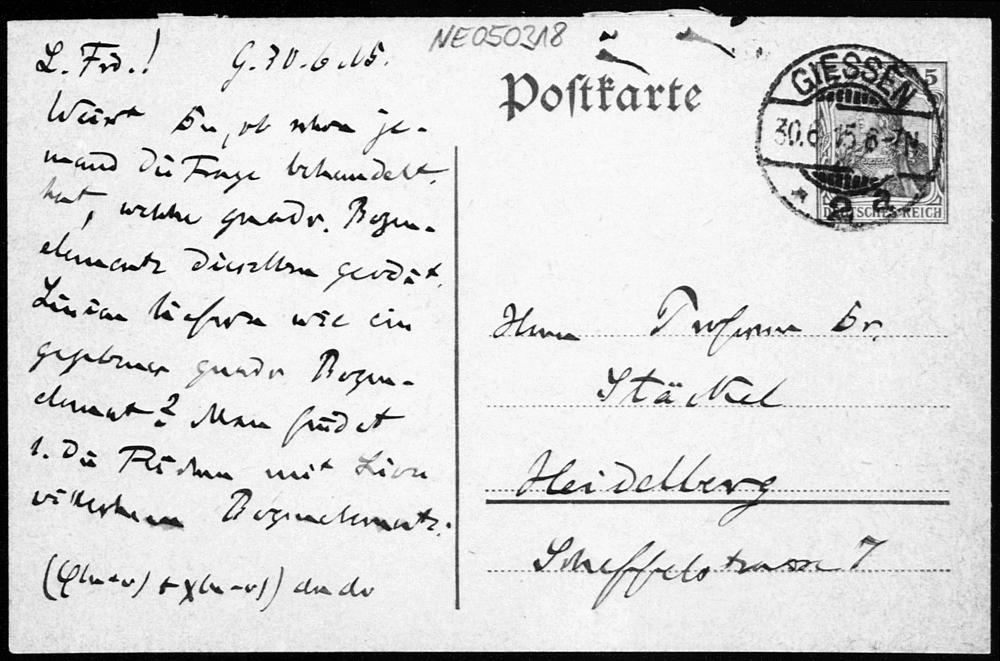 NE050318
L. Frd.! G. 30.6.15.
Weisst Du, ob schon je-
mand die Frage behandelt
hat, welche quadr. Bogen-
elemente dieselben geodät.
Linien liefern wie ein
gegebenes quadr. Bogen-
element? Man findet
1. Die Flächen mit Liou
villeschem Bogenelemente:
(φ(u+v) + χ(u-v)) du dv
Postkarte
GIESSEN
30.6.15.6-7N.
* 2 a
5
DEUTSCHES REICH
Herrn Professor Dr.
Stäckel
Heidelberg
Scheffelstrasse 7